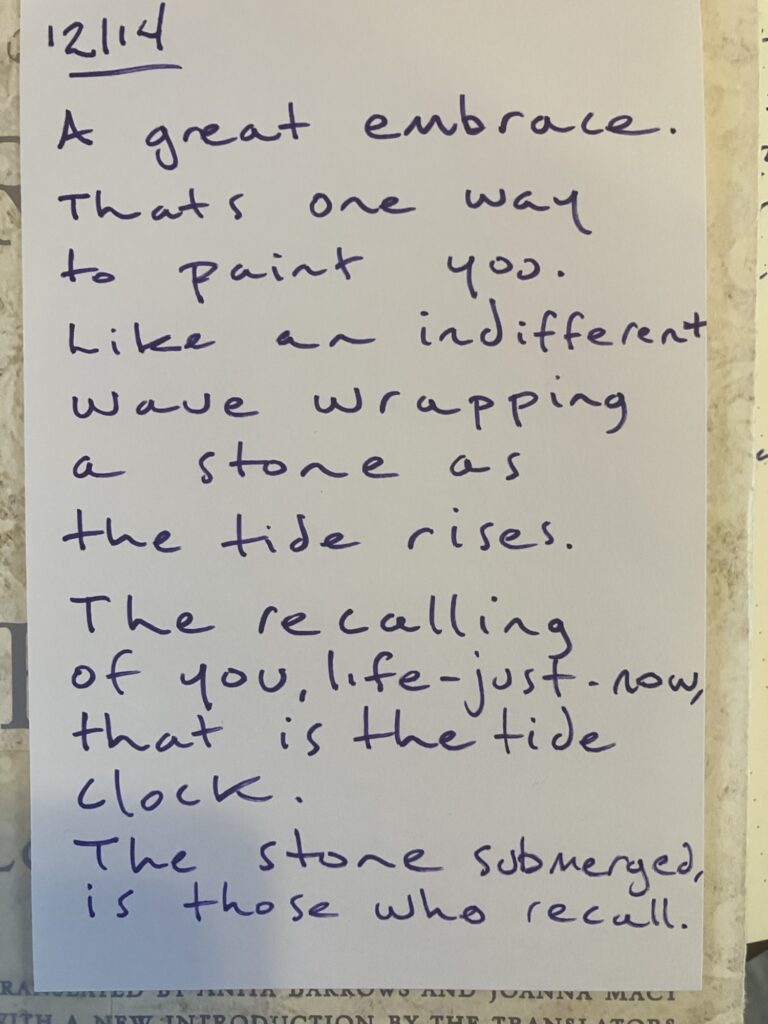 12/14
A great embrace.
Thats one way
to paint you.
Like an indifferent
wave wrapping
a stone as
the tide rises.
The recalling
of you, life-just-now,
that is the tide
clock.
The stone submerged,
is those who recall.
TRANSLATED BY ANITA BARROWS AND JOANNA MACY
WITH A NEW INTRODUCTION BY THE TRANSLATORS